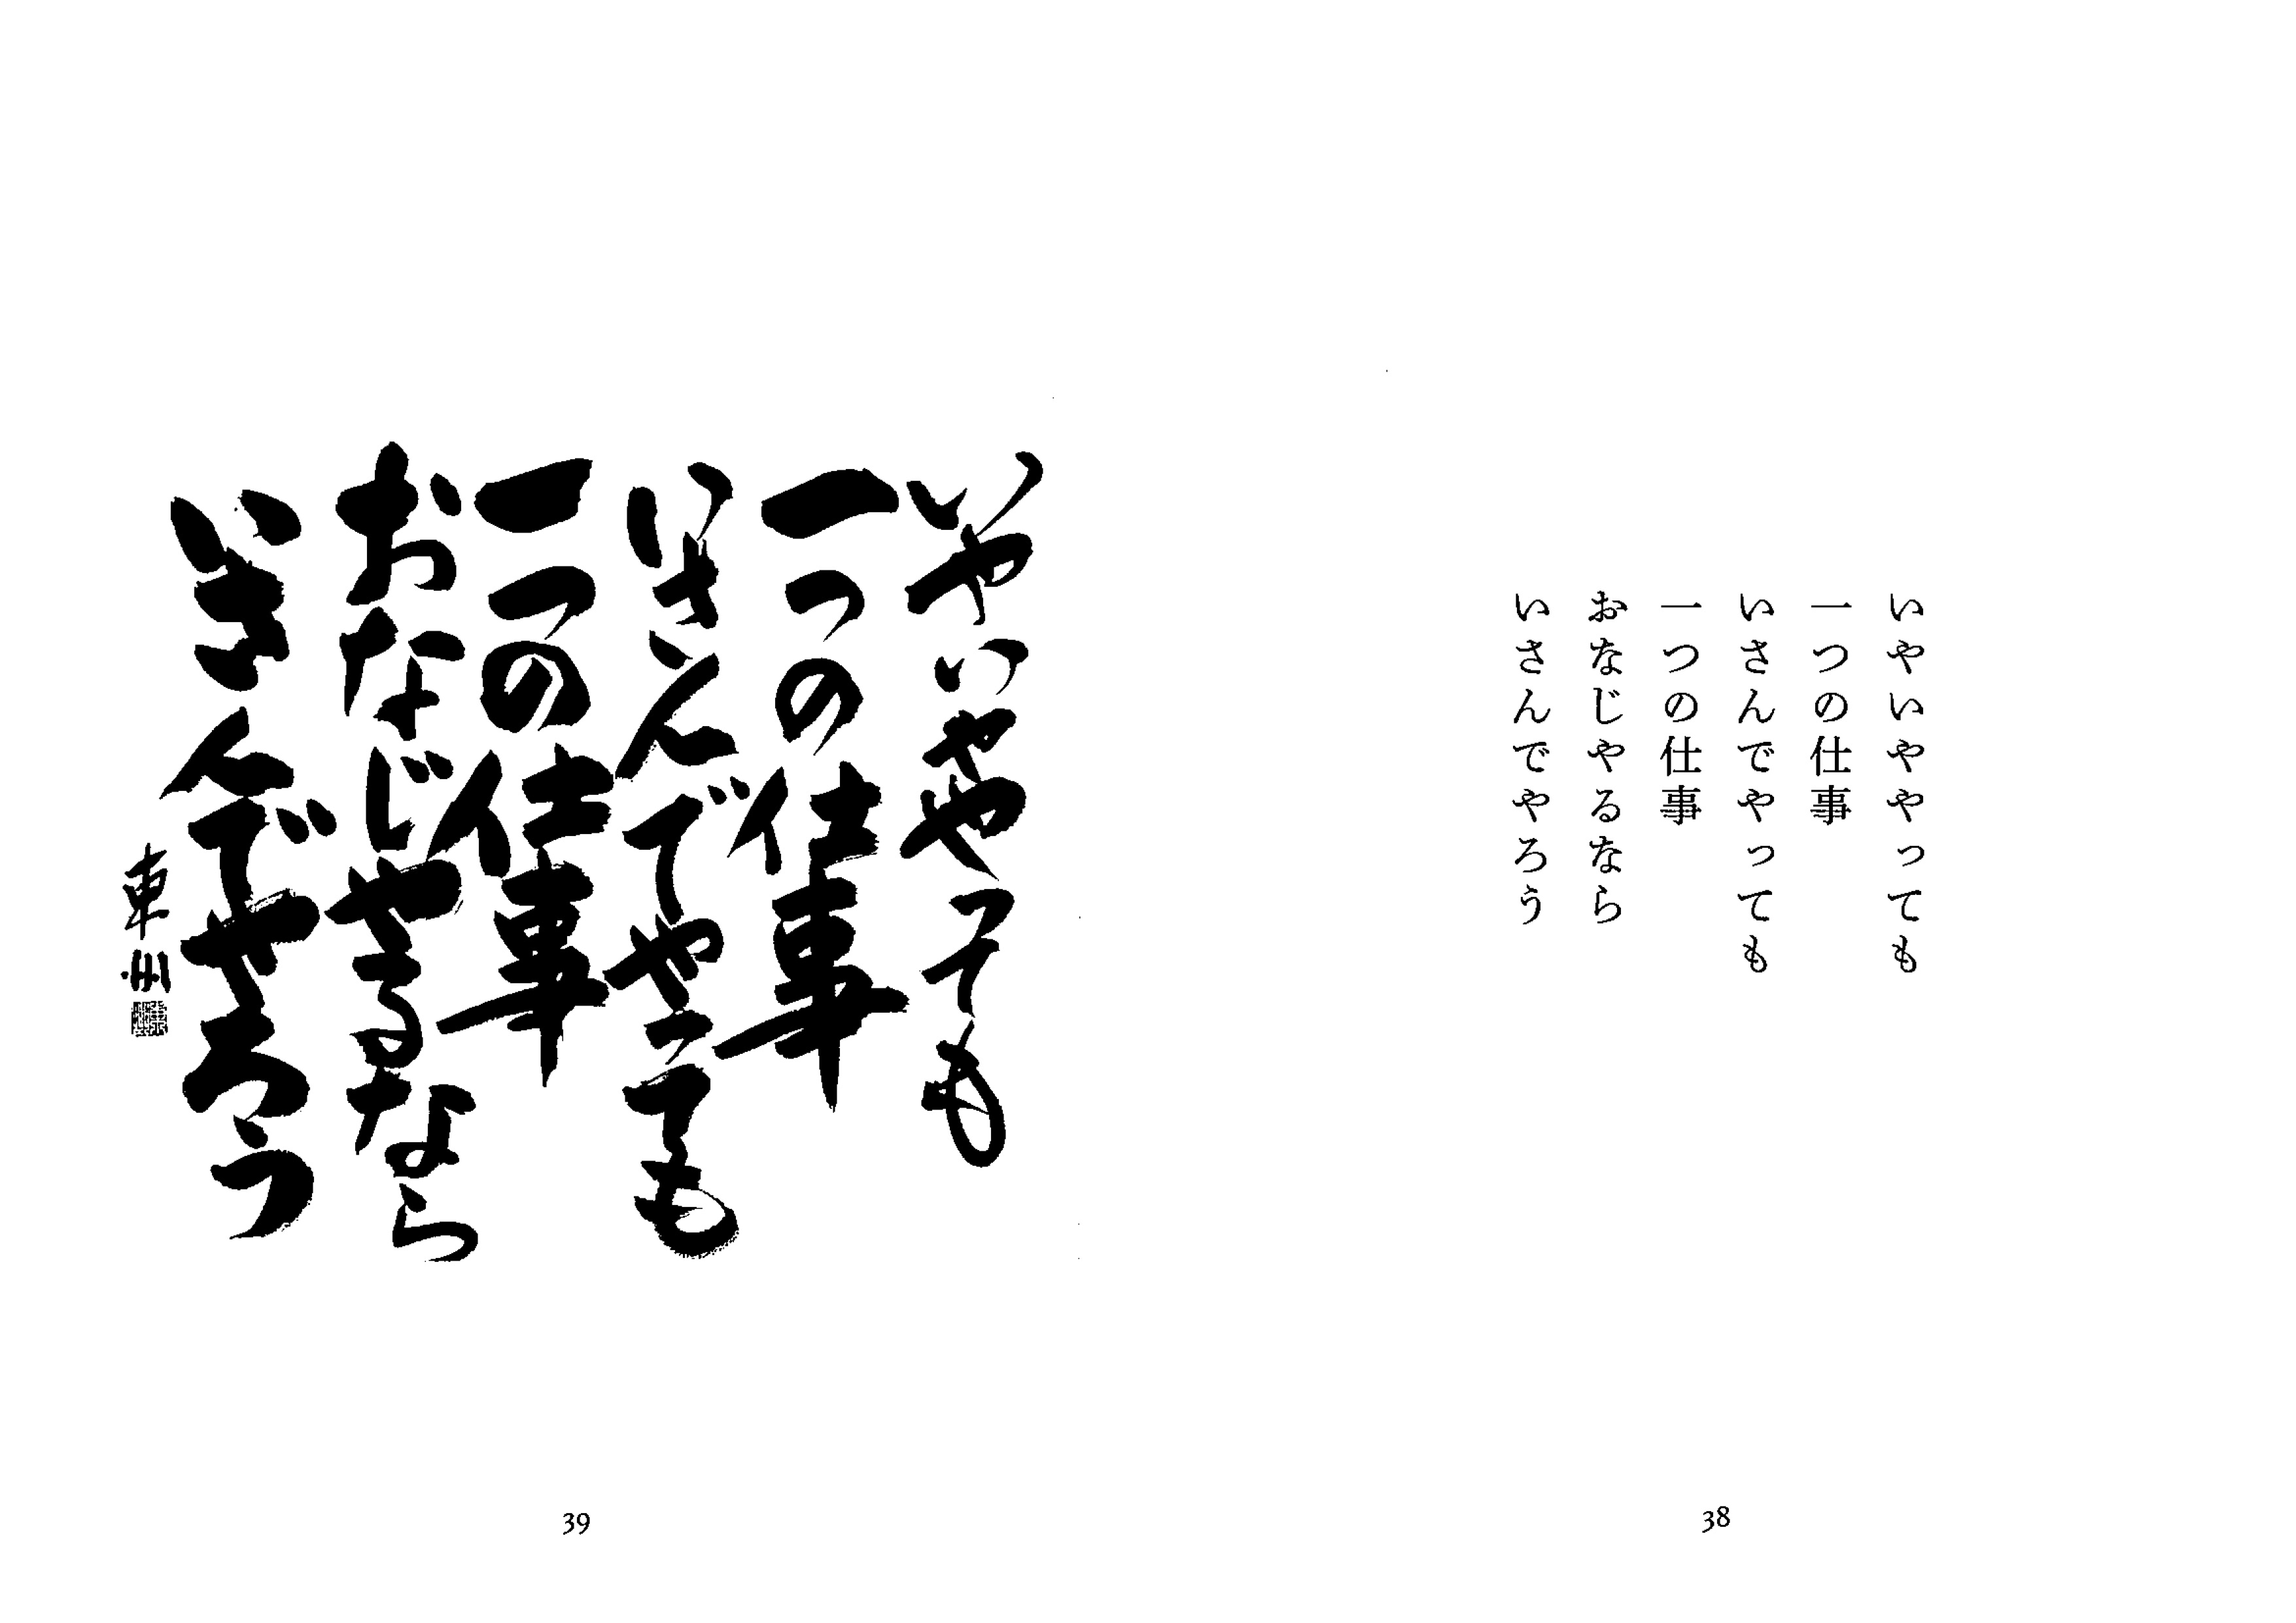 いやいややっても
一つの仕事
いさんでやっても
一つの仕事
おなじやるなら
いさんでやろう
38
いやいややっても
一つの仕事
いさんでやっても
一つの仕事
おなじやるなら
いさんでやろう
東州
39